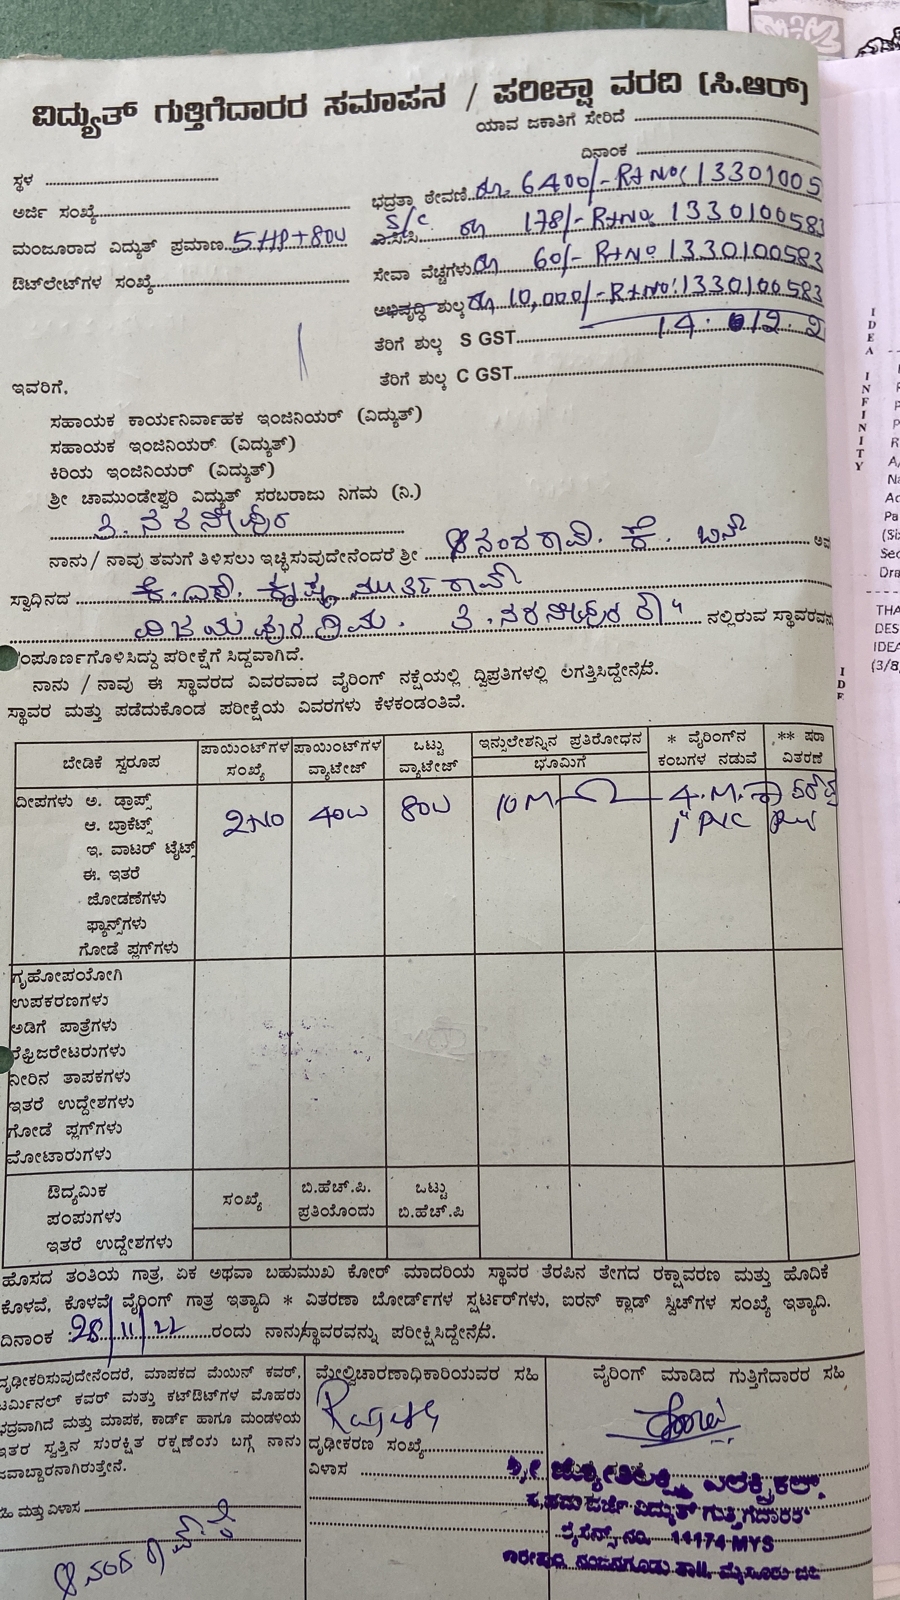 ವಿದ್ಯುತ್ ಗುತ್ತಿಗೆದಾರರ ಸಮಾಪನ / ಪರೀಕ್ಷಾ ವರದಿ (ಸಿ.ಆರ್)
ಯಾವ ಜಕಾತಿಗೆ ಸೇರಿದೆ
ದಿನಾಂಕ
ಸ್ಥಳ
ಭದ್ರತಾ ಠೇವಣಿ ರೂ. 6400/- Rt No: 1330100 5
ಅರ್ಜಿ ಸಂಖ್ಯೆ
S/C ರೂ 178/- Rt No 1330100583
ಮಂಜೂರಾದ ವಿದ್ಯುತ್ ಪ್ರಮಾಣ 5HP+80W
ಸೇವಾ ವೆಚ್ಚಗಳು ರೂ 60/- Rt No 1330100583
ಔಟ್‌ಲೇಟ್‌ಗಳ ಸಂಖ್ಯೆ
ಅಭಿವೃದ್ಧಿ ಶುಲ್ಕ ರೂ 10,000/- Rt No: 1330100583
ತೆರಿಗೆ ಶುಲ್ಕ S GST
ತೆರಿಗೆ ಶುಲ್ಕ C GST
ಇವರಿಗೆ,
ಸಹಾಯಕ ಕಾರ್ಯನಿರ್ವಾಹಕ ಇಂಜಿನಿಯರ್ (ವಿದ್ಯುತ್)
ಸಹಾಯಕ ಇಂಜಿನಿಯರ್ (ವಿದ್ಯುತ್)
ಕಿರಿಯ ಇಂಜಿನಿಯರ್ (ವಿದ್ಯುತ್)
ಶ್ರೀ ಚಾಮುಂಡೇಶ್ವರಿ ವಿದ್ಯುತ್ ಸರಬರಾಜು ನಿಗಮ (ನಿ.)
ತಿ. ನರಸೀಪುರ
ನಾನು/ ನಾವು ತಮಗೆ ತಿಳಿಸಲು ಇಚ್ಛಿಸುವುದೇನೆಂದರೆ ಶ್ರೀ ಆನಂದರಾವ್. ಕೆ. ಬಿನ್
ಸ್ವಾಧಿನದ ಕೆ. ಎಸ್. ಕೃಷ್ಣಮೂರ್ತಿರಾವ್
ವಿಜಯಪುರ ಗ್ರಾಮ. ತಿ. ನರಸೀಪುರ ತಾ" ನಲ್ಲಿರುವ ಸ್ಥಾವರವನು
ಂಪೂರ್ಣಗೊಳಿಸಿದ್ದು ಪರೀಕ್ಷೆಗೆ ಸಿದ್ದವಾಗಿದೆ.
ನಾನು / ನಾವು ಈ ಸ್ಥಾವರದ ವಿವರವಾದ ವೈರಿಂಗ್ ನಕ್ಷೆಯಲ್ಲಿ ದ್ವಿಪ್ರತಿಗಳಲ್ಲಿ ಲಗತ್ತಿಸಿದ್ದೇನೆ/ದೆ.
ಸ್ಥಾವರ ಮತ್ತು ಪಡೆದುಕೊಂಡ ಪರೀಕ್ಷೆಯ ವಿವರಗಳು ಕೆಳಕಂಡಂತಿವೆ.
ಬೇಡಿಕೆ ಸ್ವರೂಪ
ಪಾಯಿಂಟ್‌ಗಳ ಸಂಖ್ಯೆ
ಪಾಯಿಂಟ್‌ಗಳ ವ್ಯಾಟೇಜ್
ಒಟ್ಟು ವ್ಯಾಟೇಜ್
ಇನ್ಸುಲೇಶನ್ನಿನ ಪ್ರತಿರೋಧನ
ಭೂಮಿಗೆ
* ವೈರಿಂಗ್‌ನ ಕಂಬಗಳ ನಡುವೆ
** ಷರಾ ವಿತರಣೆ
ದೀಪಗಳು ಅ. ಡ್ರಾಪ್ಸ್
2 No 40W 80W 10M
ಆ. ಬ್ರಾಕೆಟ್ಸ್
1" PVC
ಇ. ವಾಟರ್ ಟೈಟ್ಸ್
ಈ. ಇತರೆ
ಜೋಡಣೆಗಳು
ಫ್ಯಾನ್ಸ್‌ಗಳು
ಗೋಡೆ ಪ್ಲಗ್‌ಗಳು
ಗೃಹೋಪಯೋಗಿ
ಉಪಕರಣಗಳು
ಅಡಿಗೆ ಪಾತ್ರೆಗಳು
ರೆಫ್ರಿಜರೇಟರುಗಳು
ನೀರಿನ ತಾಪಕಗಳು
ಇತರೆ ಉದ್ದೇಶಗಳು
ಗೋಡೆ ಪ್ಲಗ್‌ಗಳು
ಮೋಟಾರುಗಳು
ಔದ್ಯಮಿಕ
ಪಂಪುಗಳು
ಇತರೆ ಉದ್ದೇಶಗಳು
ಸಂಖ್ಯೆ
ಬಿ.ಹೆಚ್.ಪಿ. ಪ್ರತಿಯೊಂದು
ಒಟ್ಟು ಬಿ.ಹೆಚ್.ಪಿ
ಹೊಸದ ತಂತಿಯ ಗಾತ್ರ, ಏಕ ಅಥವಾ ಬಹುಮುಖ ಕೋರ್ ಮಾದರಿಯ ಸ್ಥಾವರ ತೆರಪಿನ ತೇಗದ ರಕ್ಷಾವರಣ ಮತ್ತು ಹೊದಿಕೆ
ಕೊಳವೆ, ಕೊಳವೆ ವೈರಿಂಗ್ ಗಾತ್ರ ಇತ್ಯಾದಿ * ವಿತರಣಾ ಬೋರ್ಡ್‌ಗಳ ಸ್ಟರ್ಟರ್‌ಗಳು, ಐರನ್ ಕ್ಲಾಡ್ ಸ್ವಿಚ್‌ಗಳ ಸಂಖ್ಯೆ ಇತ್ಯಾದಿ.
ದಿನಾಂಕ 28/11/22 ರಂದು ನಾನು/ಸ್ಥಾವರವನ್ನು ಪರೀಕ್ಷಿಸಿದ್ದೇನೆ/ದೆ.
ದೃಢೀಕರಿಸುವುದೇನೆಂದರೆ, ಮಾಪಕದ ಮೆಯಿನ್ ಕವರ್,
ಟರ್ಮಿನಲ್ ಕವರ್ ಮತ್ತು ಕಟ್‌ಔಟ್‌ಗಳ ಮೊಹರು
ಭದ್ರವಾಗಿದೆ ಮತ್ತು ಮಾಪಕ, ಕಾರ್ಡ್ ಹಾಗೂ ಮಂಡಳಿಯ
ಇತರ ಸ್ವತ್ತಿನ ಸುರಕ್ಷಿತ ರಕ್ಷಣೆಯ ಬಗ್ಗೆ ನಾನು
ಜವಾಬ್ದಾರನಾಗಿರುತ್ತೇನೆ.
ಸಹಿ ಮತ್ತು ವಿಳಾಸ
ಮೇಲ್ವಿಚಾರಣಾಧಿಕಾರಿಯವರ ಸಹಿ
ದೃಢೀಕರಣ ಸಂಖ್ಯೆ
ವಿಳಾಸ
ವೈರಿಂಗ್ ಮಾಡಿದ ಗುತ್ತಿಗೆದಾರರ ಸಹಿ
ಶ್ರೀ ಜ್ಯೋತಿಲಕ್ಷ್ಮಿ ಎಲೆಕ್ಟ್ರಿಕಲ್.
ವಿದ್ಯುತ್ ಗುತ್ತಿಗೆದಾರರ
ಲೈಸೆನ್ಸ್ ನಂ. 14174 MYS
ನಂಜನಗೂಡು ತಾ||, ಮೈಸೂರು ಜಿಲ್ಲೆ
IDEA INFINITY